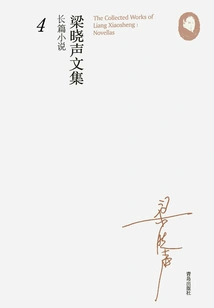 The Collected Works of
Liang Xiaosheng :
Novellas
梁晓声文集
长篇小说
4
梁晓声
青岛出版社